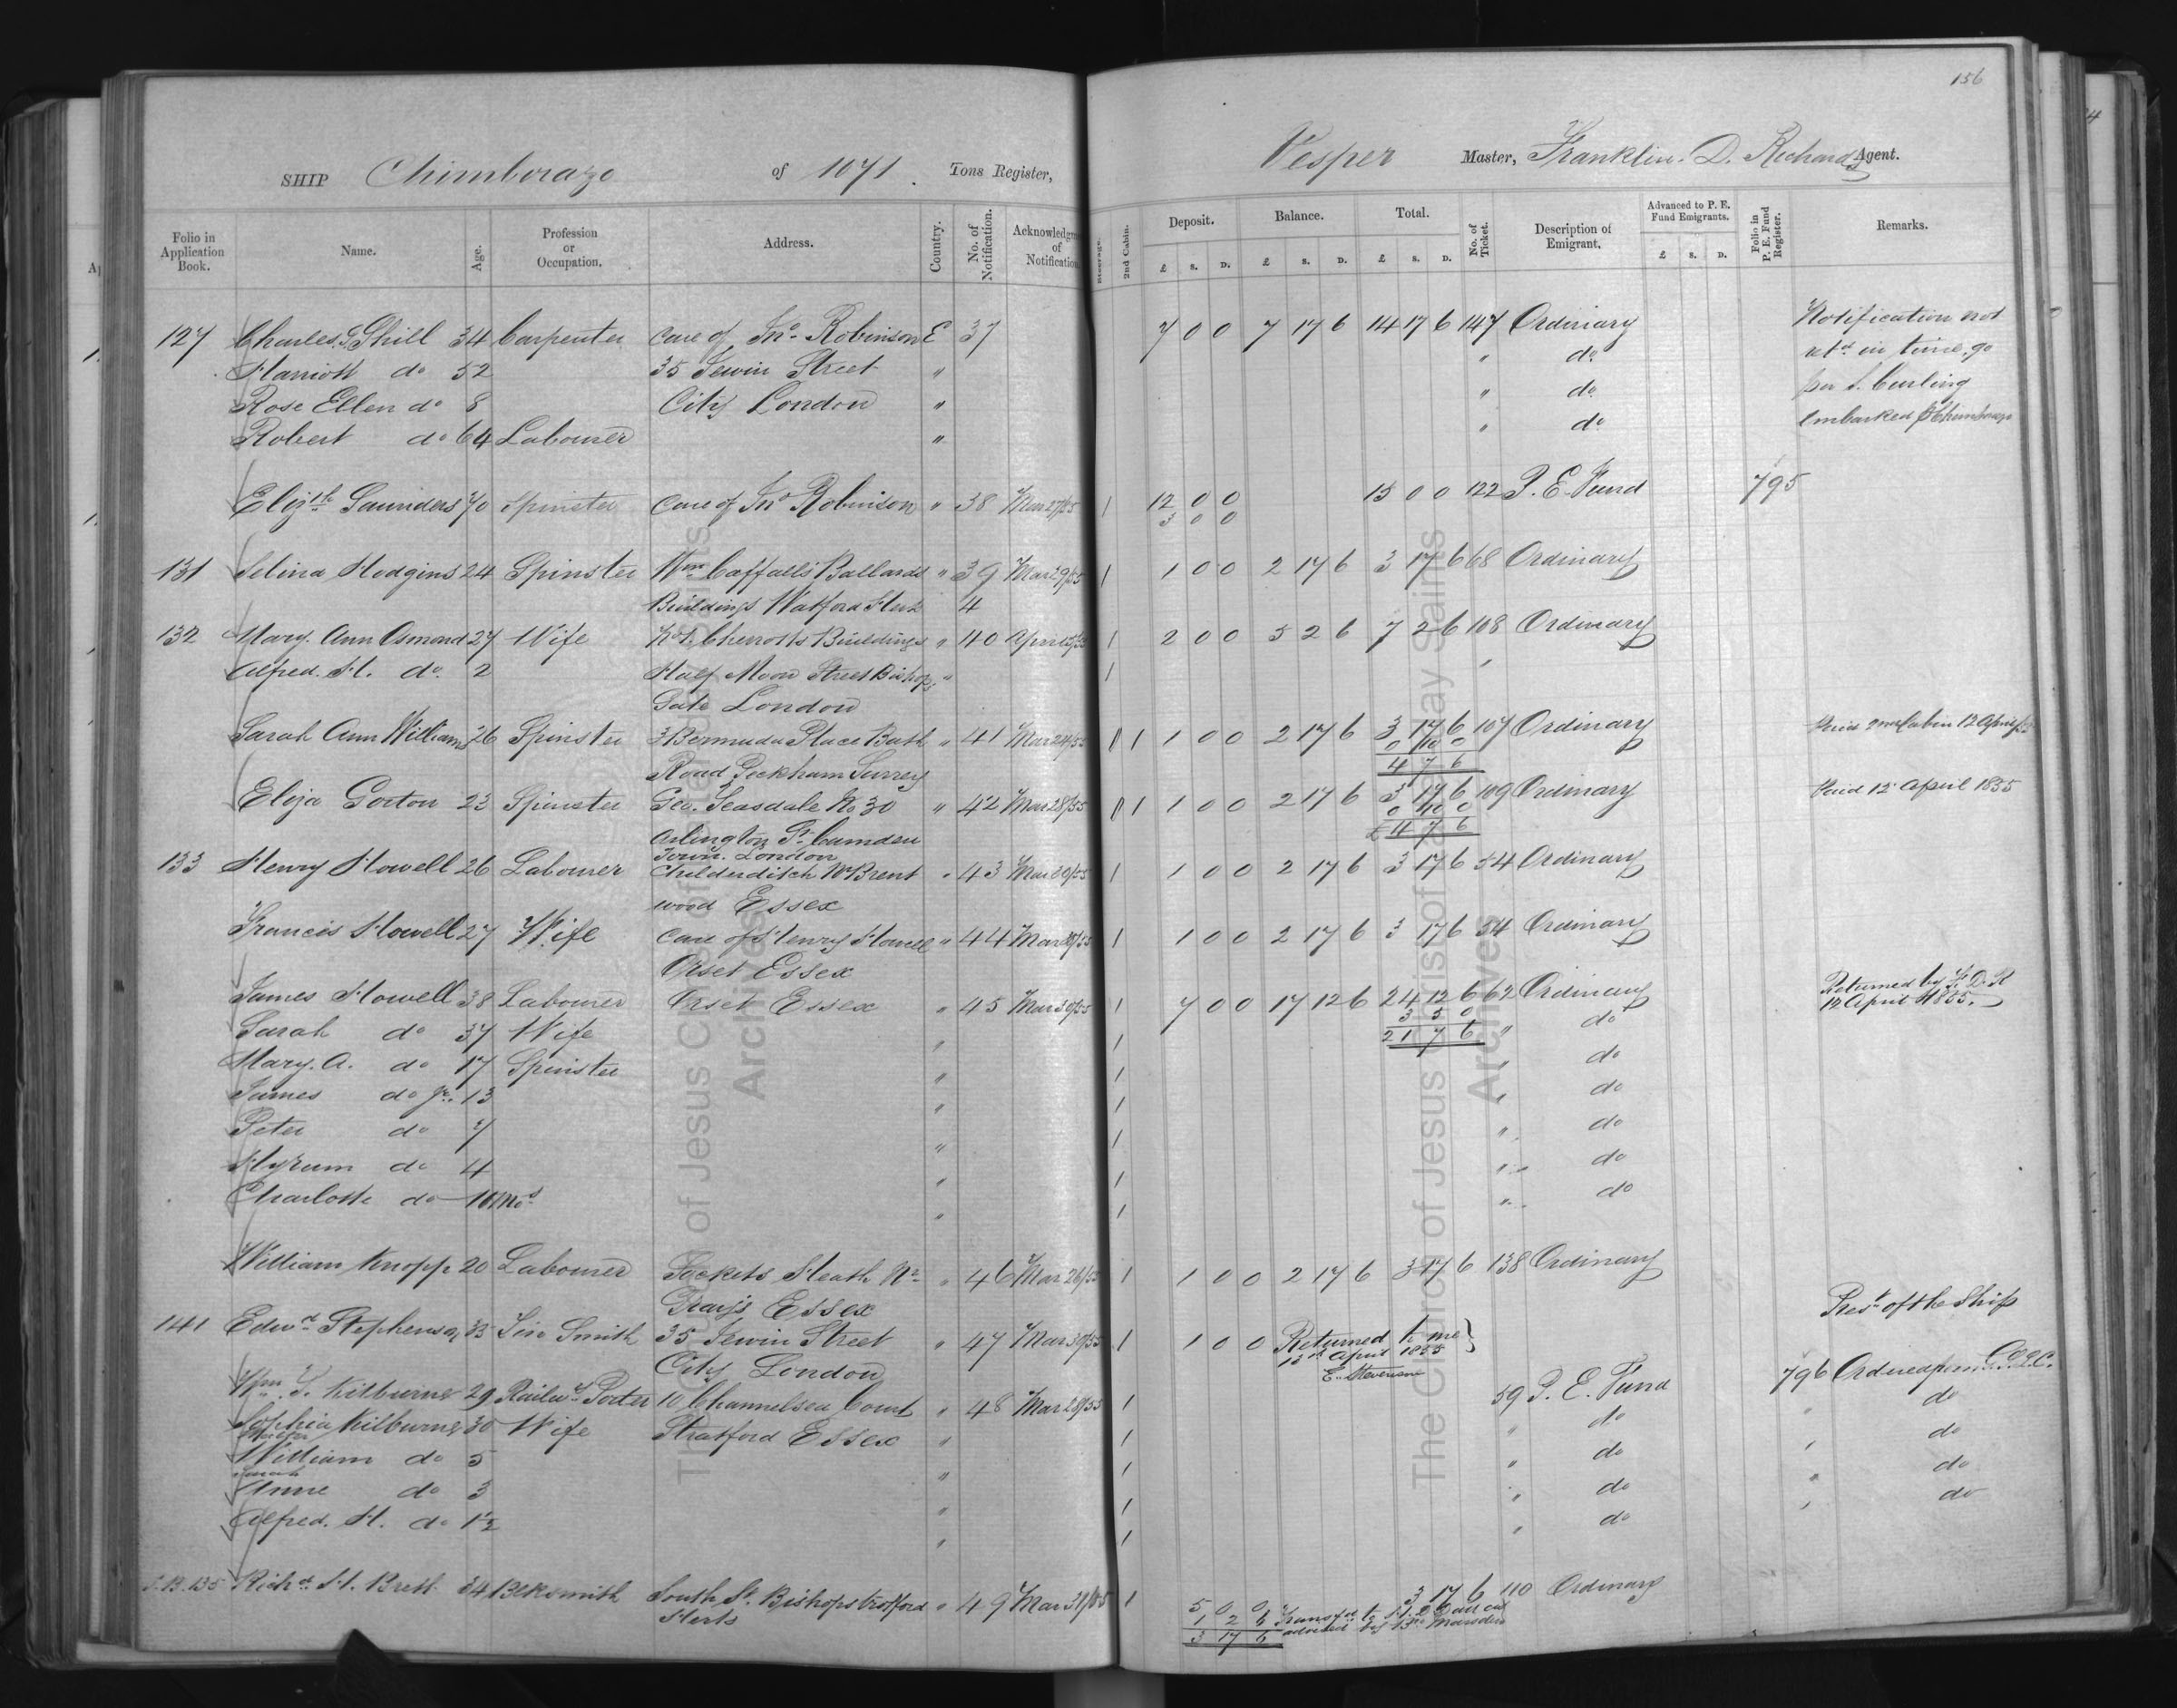 156
SHIP Chimborazo of 1071. Tons Register, Vesper Master, Franklin. D. Richards Agent.
Folio in Application Book. Name. Age. Profession or Occupation. Address. Country. No. of Notification. Acknowledgm of Notification Steerage. 2nd Cabin. Deposit. £ S. D. Balance. £ S. D. Total. £ S. D. No. of Ticket. Description of Emigrant. Advanced to P. E. Fund Emigrants. £ S. D. Folio in P. E. Fund Register. Remarks.
127 Charles G Shill 34 Carpenter Care of Jno. Robinson E 37 7 0 0 7 17 6 14 17 6 147 Ordinary Notification not
Harriott do 52 35 Jewin Street " " do. retd. in time, go
Rose Ellen do 8 City London " " do. per S. Curling
Robert do 64 Labourer " " do. Embarked p Chimborazo
Elizth Saunders 70 Spinster Care of Jno Robinson " 38 Mar 27/55 1 12 0 0 15 0 0 122 P. E. Fund 795
3 0 0
131 Selina Hodgins 24 Spinster Wm. Caffalls Ballards " 39 Mar 29/55 1 1 0 0 2 17 6 3 17 6 68 Ordinary
Buildings Watford Herts 4
132 Mary. Ann Osmond 27 Wife Buildings " 40 1 2 0 0 5 2 6 7 2 6 108 Ordinary
Alfred. H. do. 2 Half Moon Street Bishops " 1 "
Gate London
Sarah Ann Williams 26 Spinster 3 Bermuda Place Bath " 41 Mar 24/55 1 1 1 0 0 2 17 6 3 17 6 107 Ordinary Paid 2nd Cabin 12 April
0 10 0
Road Peckham Surrey 4 7 6
Eliza Gorton 23 Spinster Geo. Teasdale No 30 " 42 Mar 28/55 1 1 1 0 0 2 17 6 3 17 6 109 Ordinary Paid 12 April 1855
0 10 0
Arlington St. Camden £ 4 7 6
Town. London
133 Henry Howell 26 Labourer Childerditch Nr Brent " 43 Mar 30/55 1 1 0 0 2 17 6 3 17 6 54 Ordinary
wood Essex
Francis Howell 27 Wife Care of Henry Howell " 44 Mar 30/55 1 1 0 0 2 17 6 3 17 6 54 Ordinary
Orset Essex
James Howell 38 Labourer Orset Essex " 45 Mar 30/55 1 7 0 0 17 12 6 24 12 6 62 Ordinary Returned by F. D. R
3 5 0 12 April 1855.
Sarah do 37 Wife " 1 21 7 6 " do
Mary. A. do 17 Spinster " 1 " do
James do Jr. 13 " 1 " do
Peter do 7 " 1 " do
Hyrum do 4 " 1 " do
Charlotte do 10 Mos " 1 " do
William Knopp 20 Labourer Sockets Heath Nr " 46 Mar 26/55 1 1 0 0 2 17 6 3 17 6 138 Ordinary
Grays Essex Prest of the Ship
141 Edwd Stephenson 35 Tin Smith 35 Jewin Street " 47 Mar 30/55 1 1 0 0 Returned to me
City London 12th April 1855
E. Stevenson
Wm. T. Kilburne 29 Railwy Porter 10 Channelsea Court " 48 Mar 28/55 1 59 P. E. Fund 796 Ordered from G. S. L. C.
Sophia Kilburne 30 Wife Stratford Essex " 1 " do " do
William do 5 " 1 " do " do
Sarah
Anne do 3 " 1 " do " do
Alfred. H. do 1½ " 1 " do " do
S.B. 135 Richd. H. Brett 34 Blksmith South St. Bishops Stortford " 49 Mar 31/55 1 3 17 6 110 Ordinary
Herts
5 0 0
1 2 6 Transfd to
3 17 6 advised by Marsden
The Church of Jesus Christ of Latter-day Saints
Archives
The Church of Jesus Christ of Latter-day Saints
Archives